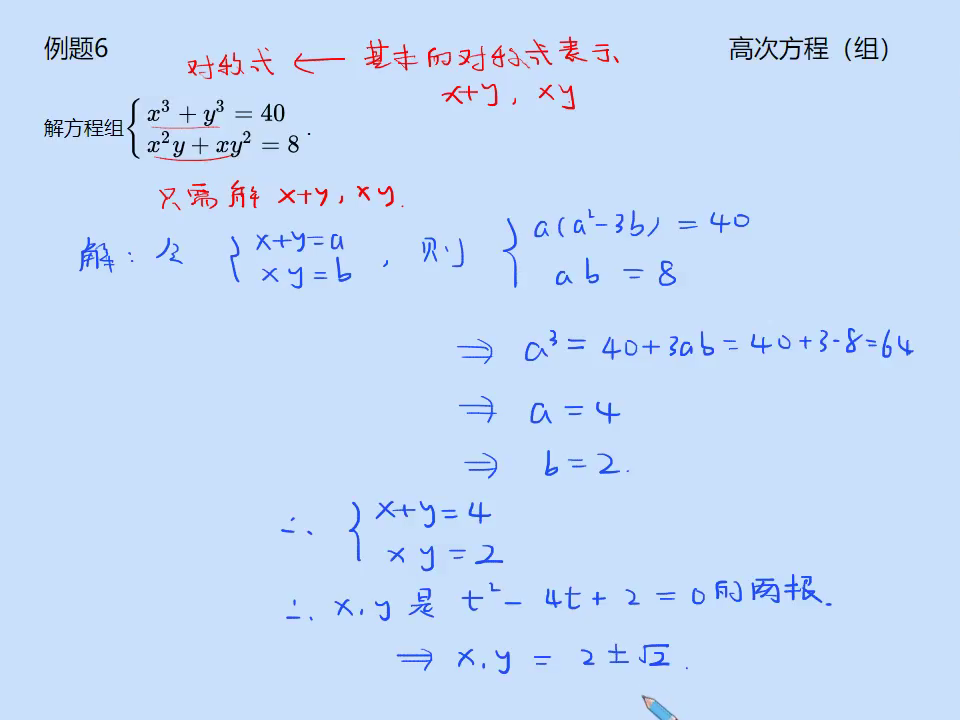 例题6
高次方程（组）
对称式 ← 基本的对称式表示
x+y , xy
解方程组 { x³ + y³ = 40
x²y + xy² = 8 .
只需解 x+y, xy.
解: 令 { x+y=a
xy=b , 则 { a(a²-3b) = 40
ab = 8
⇒ a³ = 40+3ab = 40+3·8=64
⇒ a = 4
⇒ b = 2.
∴ { x+y=4
xy=2
∴ x,y 是 t² - 4t + 2 = 0 的两根.
⇒ x,y = 2±√2 .